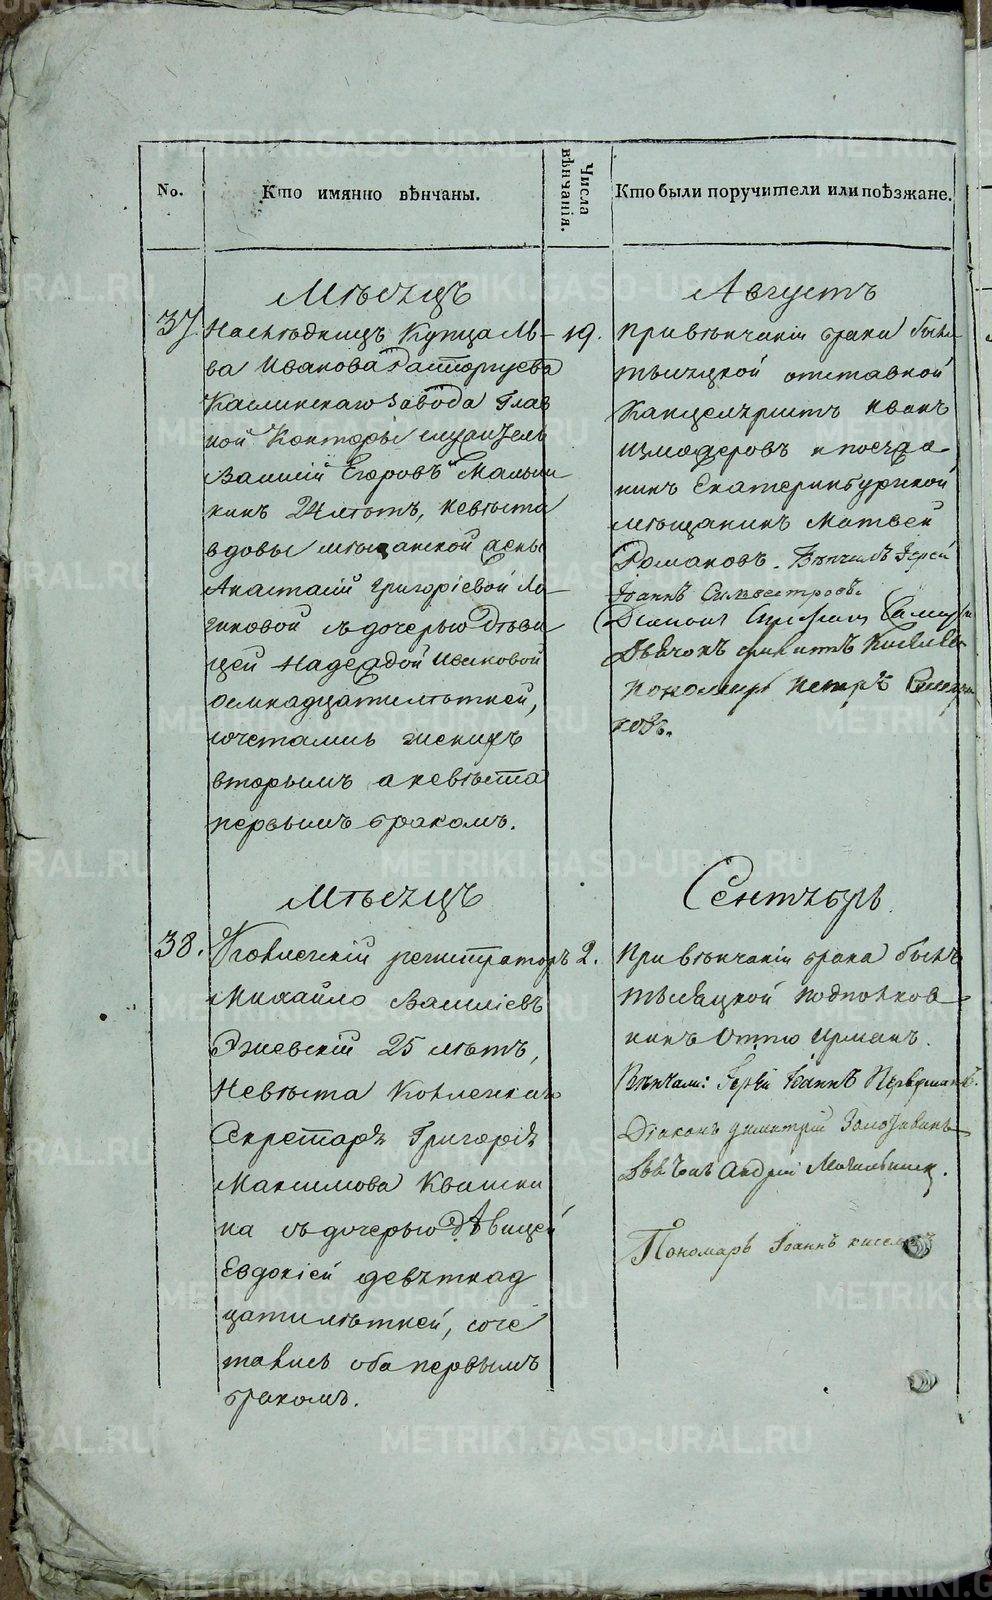 No.
Кто имянно вѣнчаны.
Числа вѣнчанія.
Кто были поручители или поѣзжане.
Мѣсяцъ
Августъ
37.
Наслѣдницъ Купца Ль-
ва Иванова Расторгуева
Каслинскаго завода Глав
ной Конторы служитель
Василій Егоровъ
24 лѣтъ, невѣста
вдовы мѣщанской жены
Анастасіи Григоріевой Ло-
гиновой съ дочерью Дѣви
цей Надеждой Ивановой
осмнадцатилѣтней,
сочетались женихъ
вторымъ а невѣста
первымъ бракомъ.
19.
При вѣнчаніи брака былъ
тысяцкой отставной
Канцеляристъ Иванъ
Измодеровъ и поезжа
нинъ Екатеринбургской
мѣщанинъ Матвей
Романовъ. Вѣнчалъ Іерей
Іоаннъ Сильвестровъ
Діаконъ
Дьячокъ Киселевъ
Пономарь Петръ
Мѣсяцъ
Сентябрь.
38.
Коллежскій регистраторъ
Михайло Василіевъ
Ржевскій 25 лѣтъ,
Невѣста Коллежскаго
Секретаря Григорія
Максимова Квашни
на съ дочерью дѣвицей
Евдокіей девятнад
цатилѣтней, соче
тались оба первымъ
бракомъ.
2.
При вѣнчаніи брака былъ
тысяцкой подполков
никъ Отто Ирманъ.
Вѣнчали: Іерей Іоаннъ
Діаконъ Димитрій
Дьячекъ Андрей
Пономарь Іоаннъ Киселевъ
METRIKI.GASO-URAL.RU